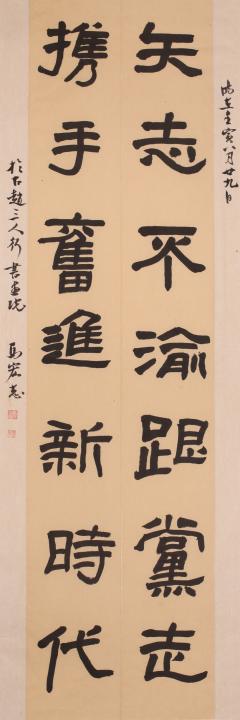 时在壬寅八月廿九日
矢志不渝跟黨走
攜手奮進新時代
於石趙三人行書畫院 馬宏志